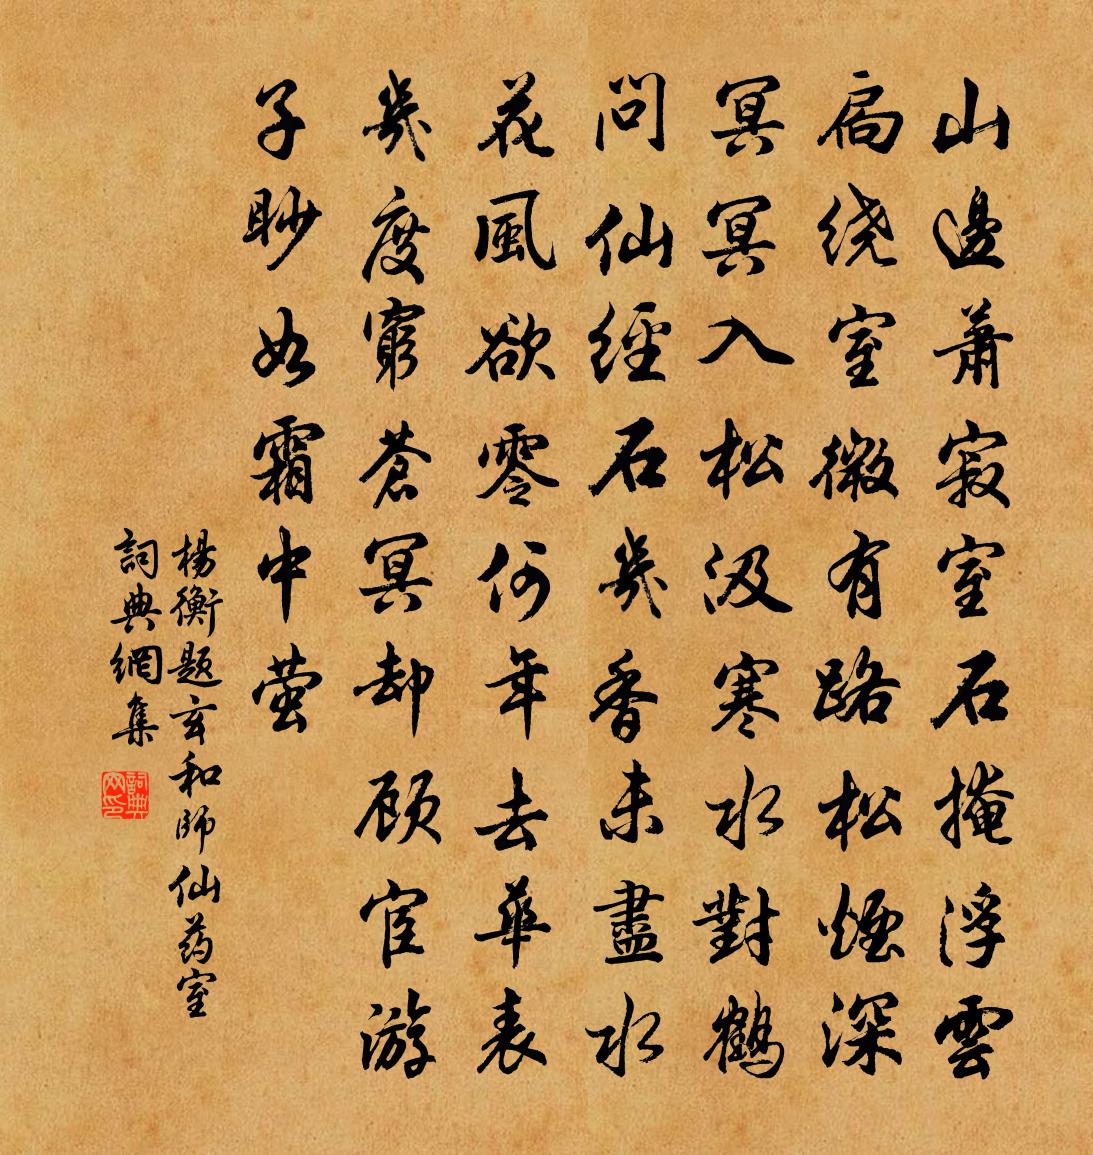 山邊蕭寂室石掩浮雲
扃绕室微有路松煙深
冥冥入松汲寒水對鶴
問仙經石幾香未盡水
花風欲零何年去華表
幾度窮蒼冥却顾宦游
子眇如霜中萤
楊衡题玄和師仙药室
詞典網集
詞典网印